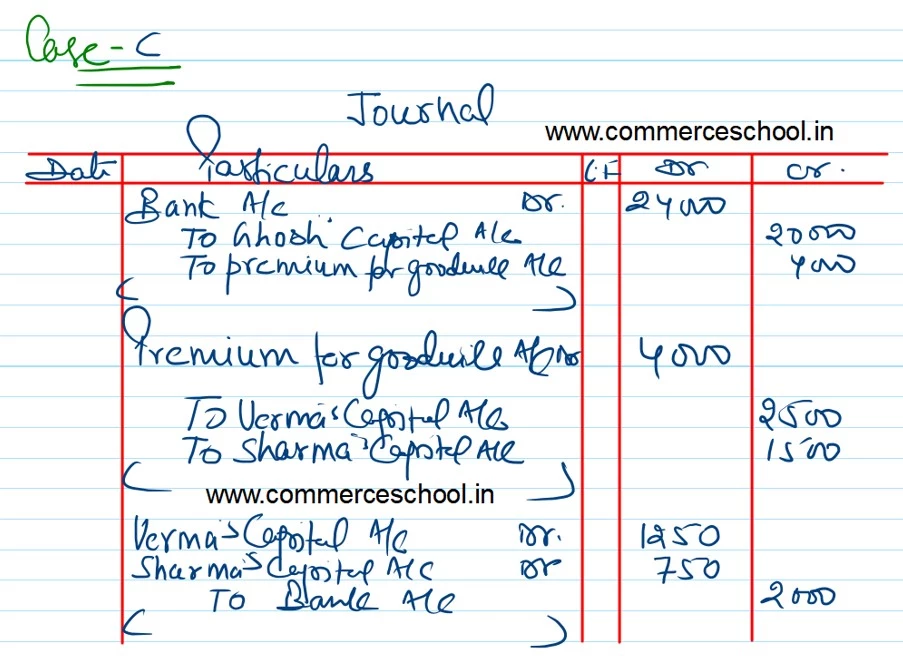 Case - C
Journal
www.commerceschool.in
Date Particulars L.F Dr Cr.
Bank A/c Dr. 24000
To Ghosh' Capital A/c 20000
To premium for goodwill A/c 4000
Premium for goodwill A/c Dr 4000
To Verma's Capital A/c 2500
To Sharma's Capital A/c 1500
www.commerceschool.in
Verma's Capital A/c Dr. 1250
Sharma's Capital A/c Dr 750
To Bank A/c 2000